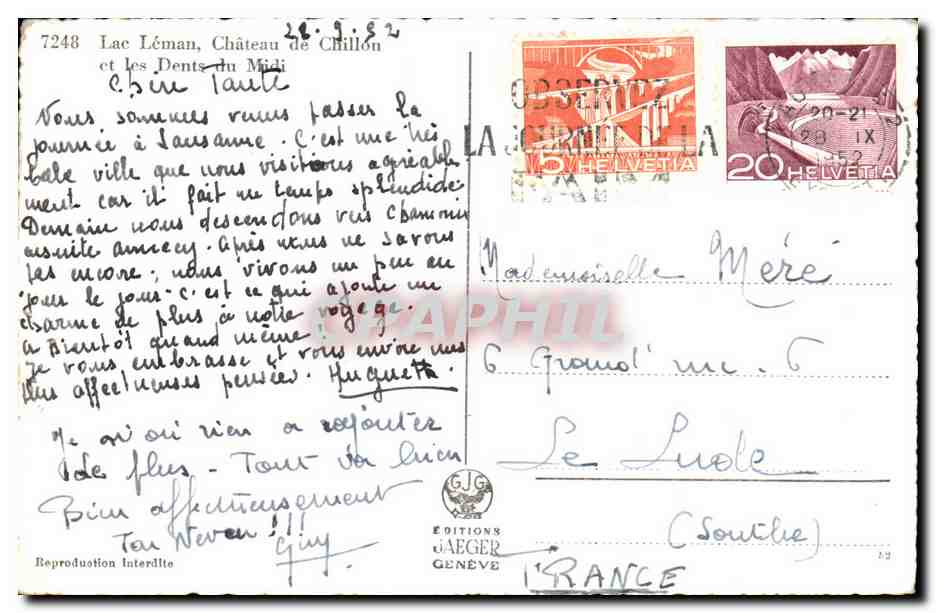 28.9.52
7248 Lac Léman, Château de Chillon
et les Dents du Midi
Chère Tante
Nous sommes venus passer la
journée à Lausanne. C'est une très
belle ville que nous visitons agréable
ment car il fait un temps splendide
Demain nous descendons vers Chamonix
ensuite Annecy. Après nous ne savons
pas encore; nous vivons un peu au
jour le jour. C'est ce qui ajoute un
charme de plus à notre voyage.
A Bientôt quand même
Je vous embrasse et vous envoie mes
plus affectueuses pensées. Huguette
Je n'ai rien a rajouter
de plus - Tout va bien
Bien affectueusement
Ton Neveu!!!
Guy
Reproduction Interdite
GJG
EDITIONS
JAEGER
GENÈVE
OBSERVEZ
LA JOURNÉE DE LA
5 HELVETIA
20 HELVETIA
20-21
28 IX
1952
Mademoiselle Méré
6 Grand' rue. 6
Le Lude
(Sarthe)
FRANCE
52
CPAPHIL